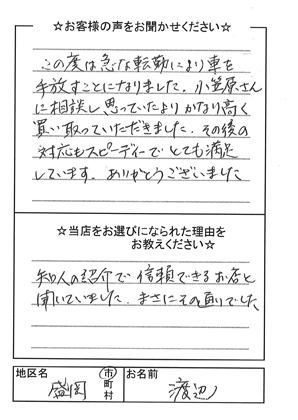 ☆お客様の声をお聞かせください☆
この度は急な転勤により車を
手放すことになりました。小笠原さん
に相談し思っていたよりかなり高く
買い取っていただきました。その後の
対応もスピーディーでとても満足
しています。ありがとうございました
☆当店をお選びになられた理由を
お教えください☆
知人の紹介で信頼できるお店と
聞いていました。まさにその通りでした
地区名 盛岡 市町村 お名前 渡辺